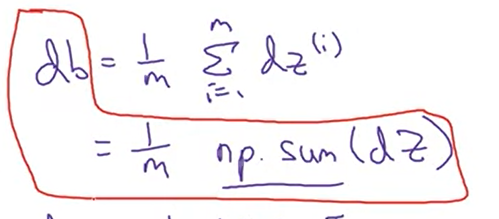 db = 1/m Σ_{i=1}^{m} dz^{(i)}
= 1/m np.sum(dZ)